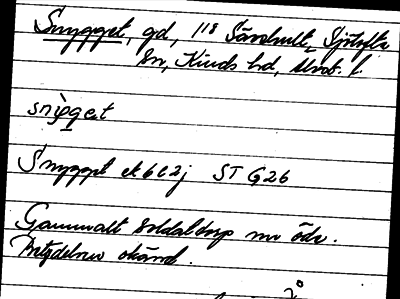 Snygget, gd, 1/8 Särshult, Sjötofta
sn, Kinds hd, Älvsb. l.
snỳget
Snygget ek 6C2j ST G26
Gammalt soldattorp nu öde.
Betydelsen okänd.